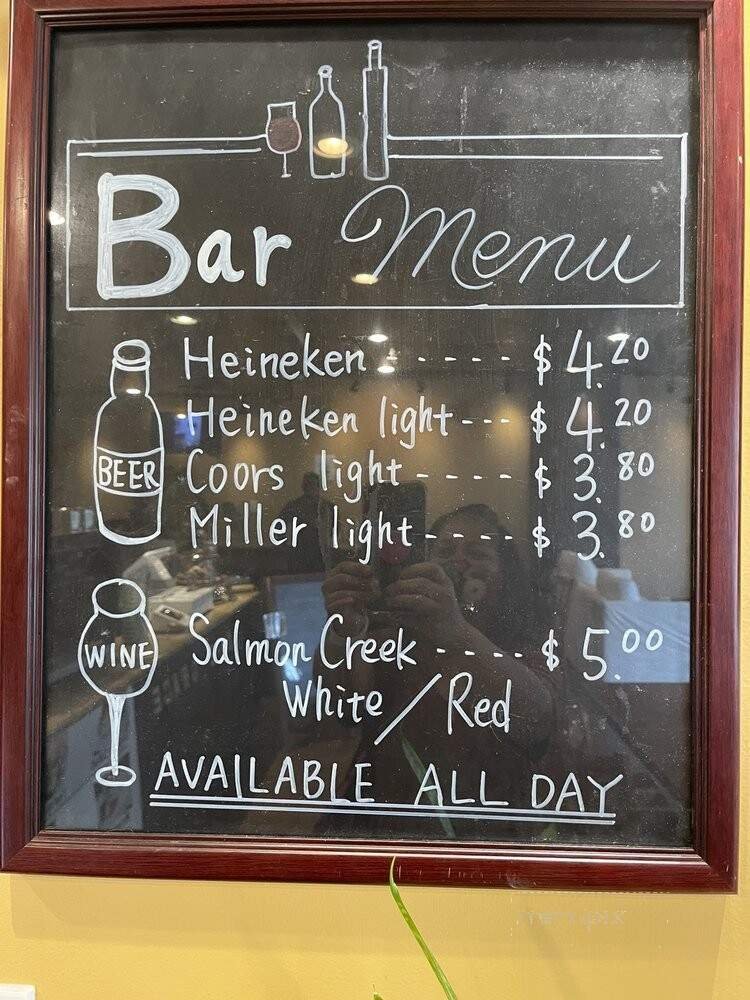 Bar Menu
Heineken ----- $4.20
Heineken light --- $4.20
BEER
Coors light ---- $3.80
Miller light ---- $3.80
WINE
Salmon Creek ---- $5.00
White / Red
AVAILABLE ALL DAY